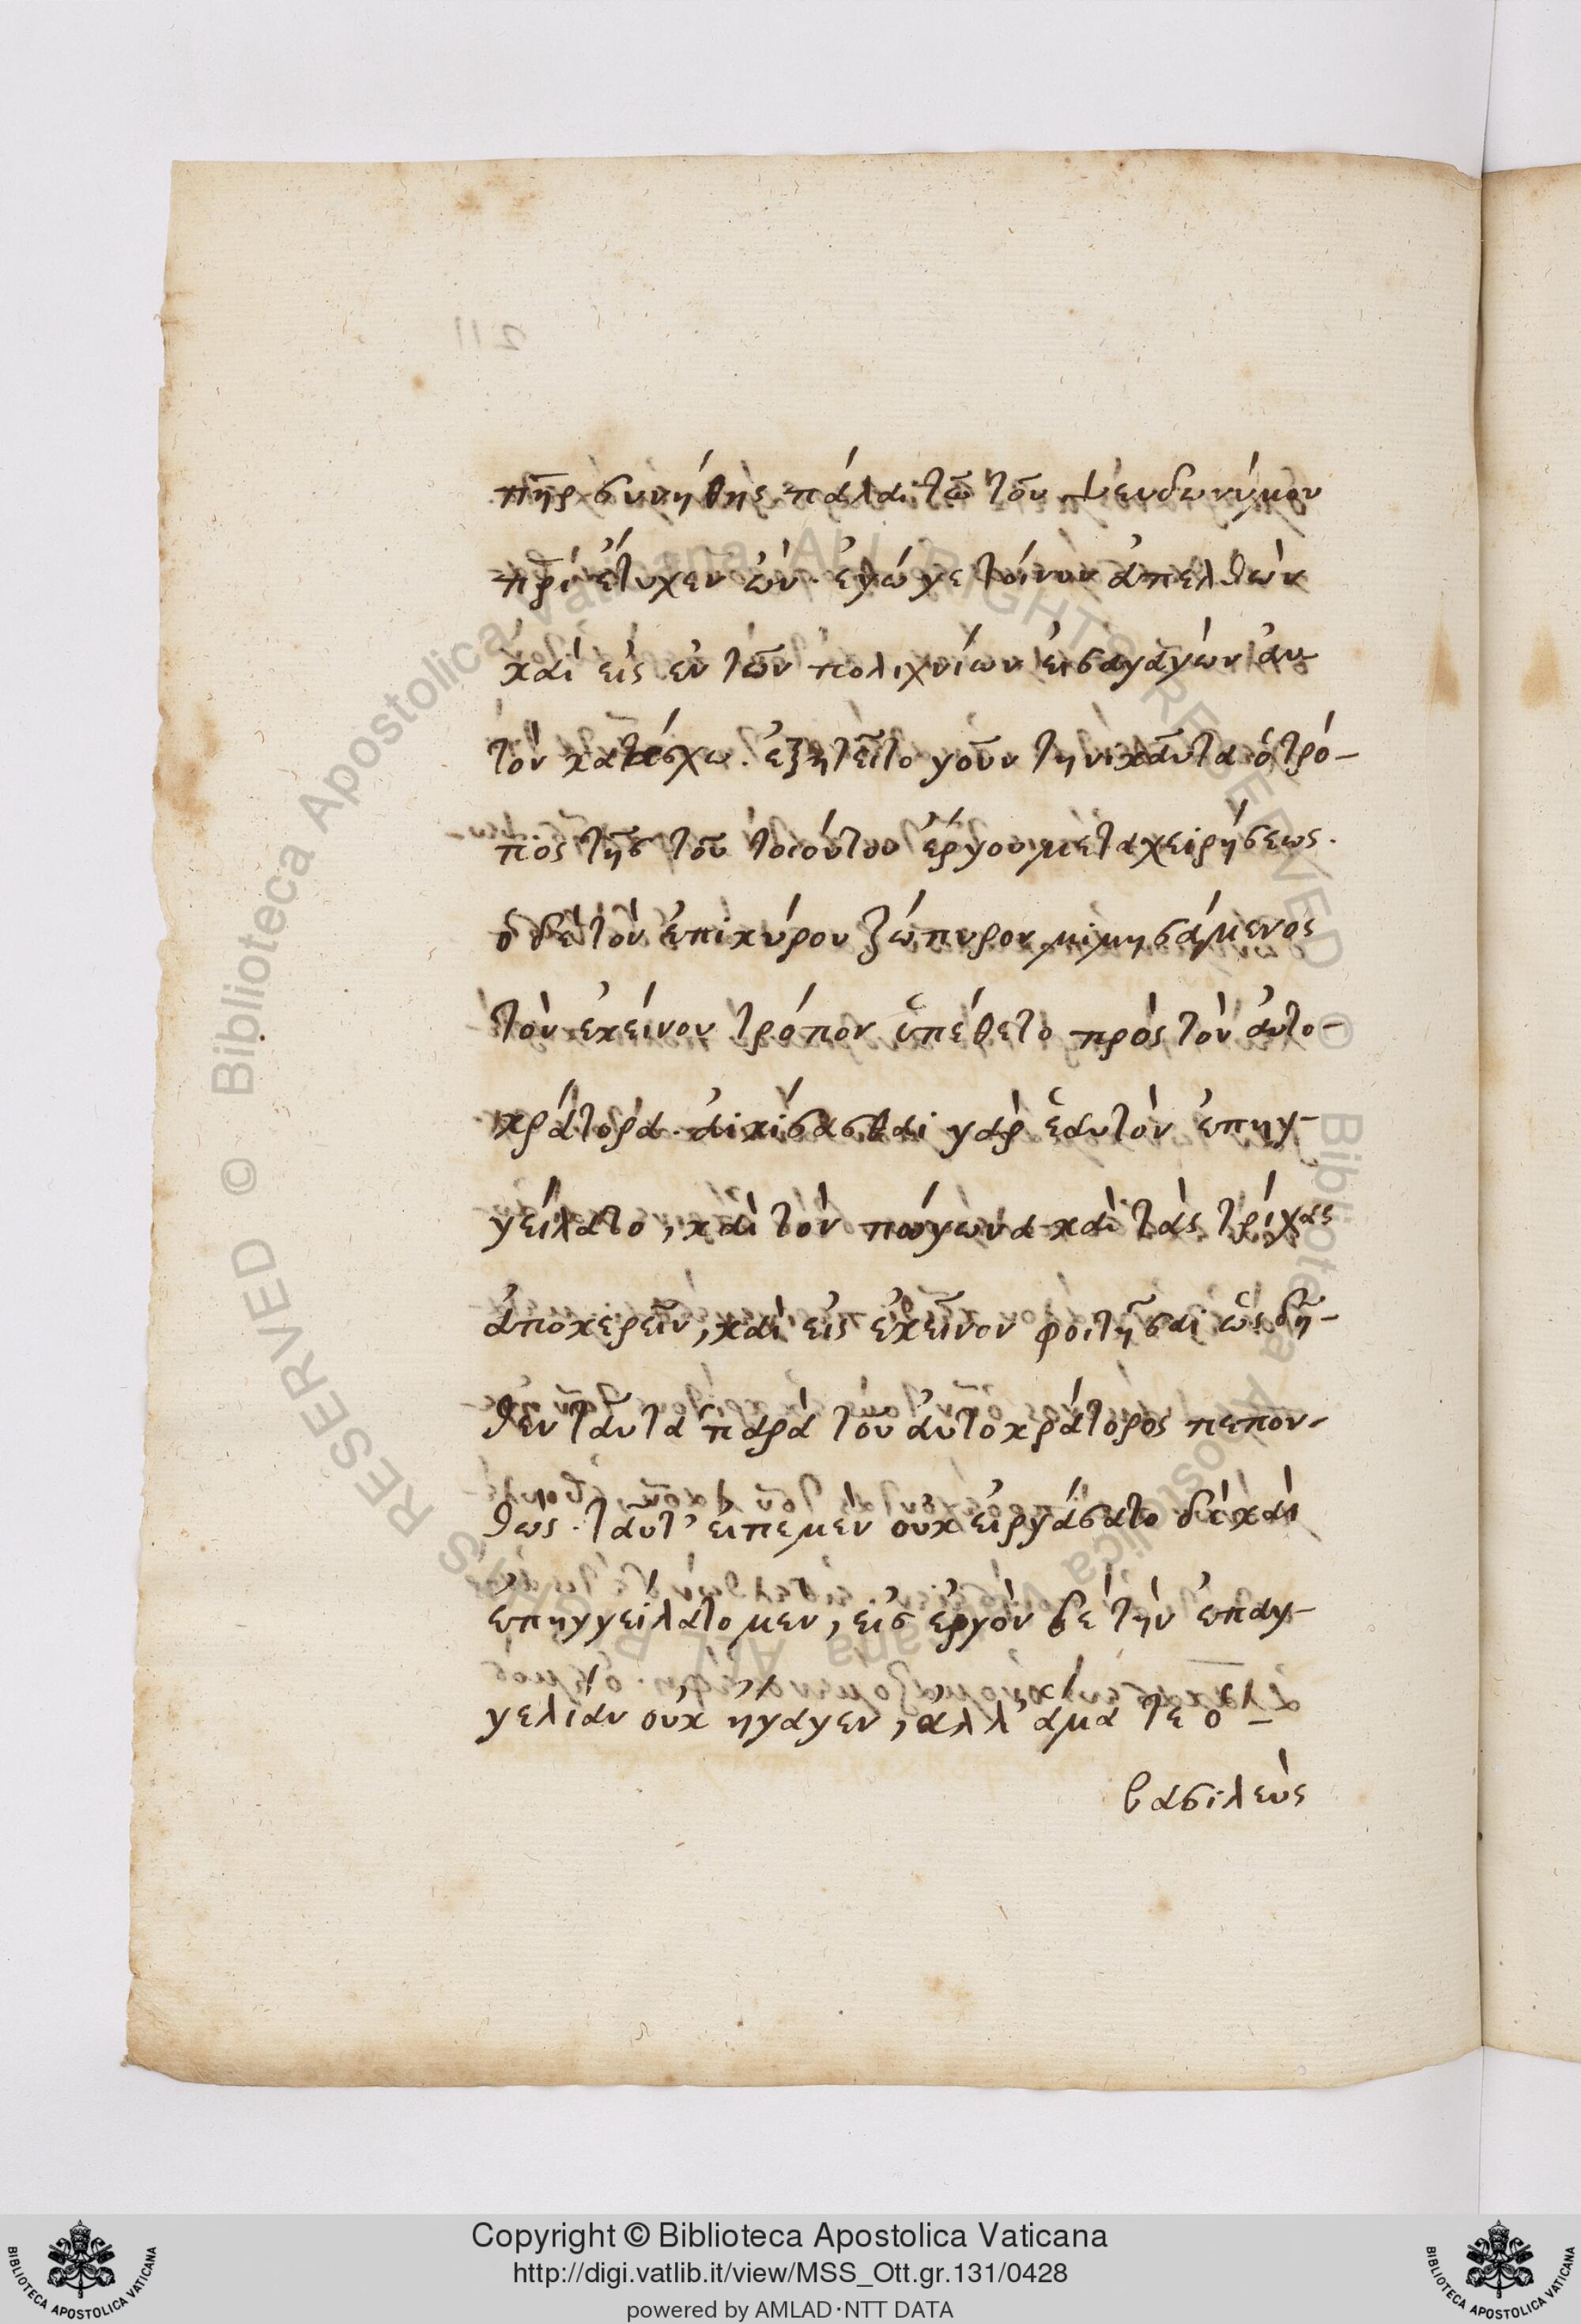 πῆρ συνήθης πάλαι τῶ τοῦ ψευδωνύμου
πρὶ ἐτύχεν ὤν. ἐγώ γε τοίνυν ἀπελθὼν
καὶ εἰς ἓν τῶν πολιχνίων εἰσαγαγὼν αὐ
τὸν κατάσχω. ἐζητεῖτο γοῦν τηνικαῦτα ὁ τρό-
πος τῆς τοῦ τοιούτου ἔργου μεταχειρήσεως.
ὁ δὲ τὸν ἐπὶ κύρου ζώπυρον μιμησάμενος
τὸν ἐκείνου τρόπον ὑπέθετο πρὸς τὸν αὐτο-
κράτορα. αἰκίσασθαι γὰρ ἑαυτὸν ἐπηγ-
γείλατο, καὶ τὸν πώγωνα καὶ τὰς τρίχας
ἀποκερεῖν, καὶ εἰς ἐκεῖνον φοιτῆσαι ὡς δῆ-
θεν ταῦτα παρὰ τοῦ αὐτοκράτορος πεπον-
θώς. ταῦτ' εἶπε μὲν οὐκ εἰργάσατο δὲ καὶ
ἐπηγγείλατο μεν, εἰς ἔργον δὲ τὴν ἐπαγ-
γελίαν οὐκ ἤγαγεν, ἀλλ' ἅμα τε ὁ -
βασιλεὺς
211
© Biblioteca Apostolica Vaticana ALL RIGHTS RESERVED
© Biblioteca Apostolica Vaticana ALL RIGHTS RESERVED
Copyright © Biblioteca Apostolica Vaticana
http://digi.vatlib.it/view/MSS_Ott.gr.131/0428
powered by AMLAD·NTT DATA
BIBLIOTECA APOSTOLICA VATICANA
BIBLIOTECA APOSTOLICA VATICANA